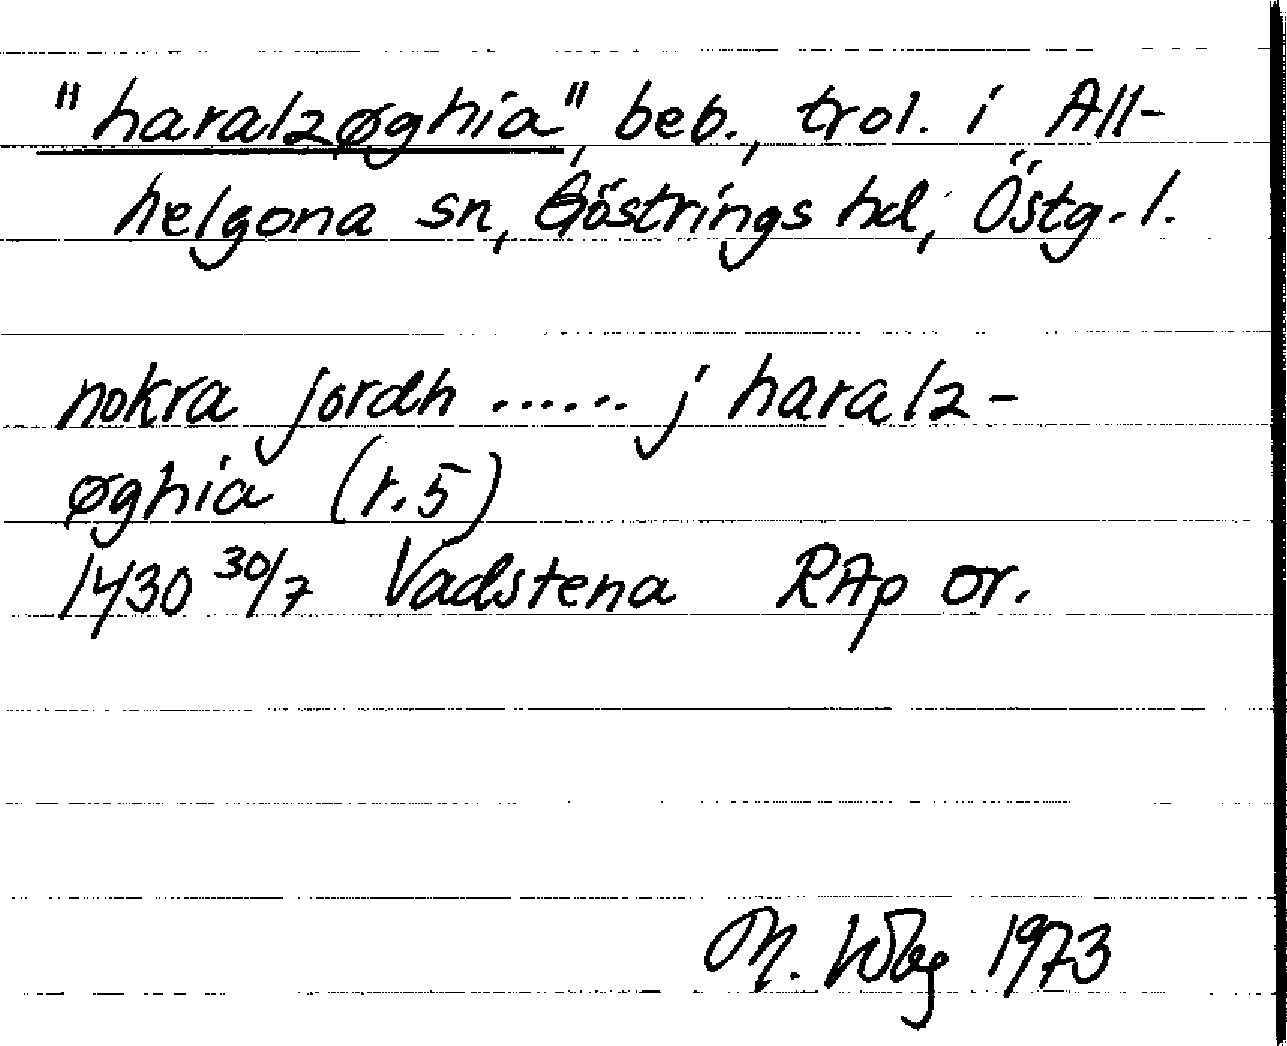 "haralzøghia", beb., trol. i All-
helgona sn, Göstrings hd, Östg.l.
nokra jordh ...... j haralz-
øghia (r.5)
1430 30/7 Vadstena RAp or.
M. 1973